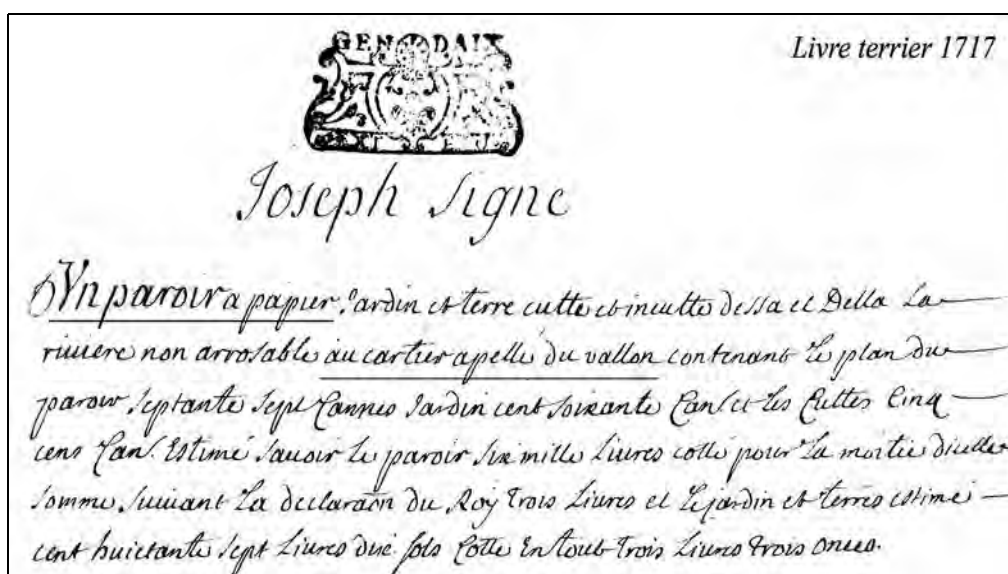 GEN DAIX
Livre terrier 1717
Joseph Signe
Un paroir a papier Jardin et terre cutte et incutte dessa et Della La
riuiere non arrosable au cartier apellé du vallon contenant le plan du
paroir septante sept Cannes Jardin cent soixante Can. et les Cuttes Cinq
cens Can. Estimé scauoir le paroir six mille Liures cotté pour La moitié dicelle
somme suiuant La declaraõn du Roy Trois Liures et Le jardin et terres estimé
cent huictante sept Liures dix sols Cotte En tout Trois Liures trois onces.